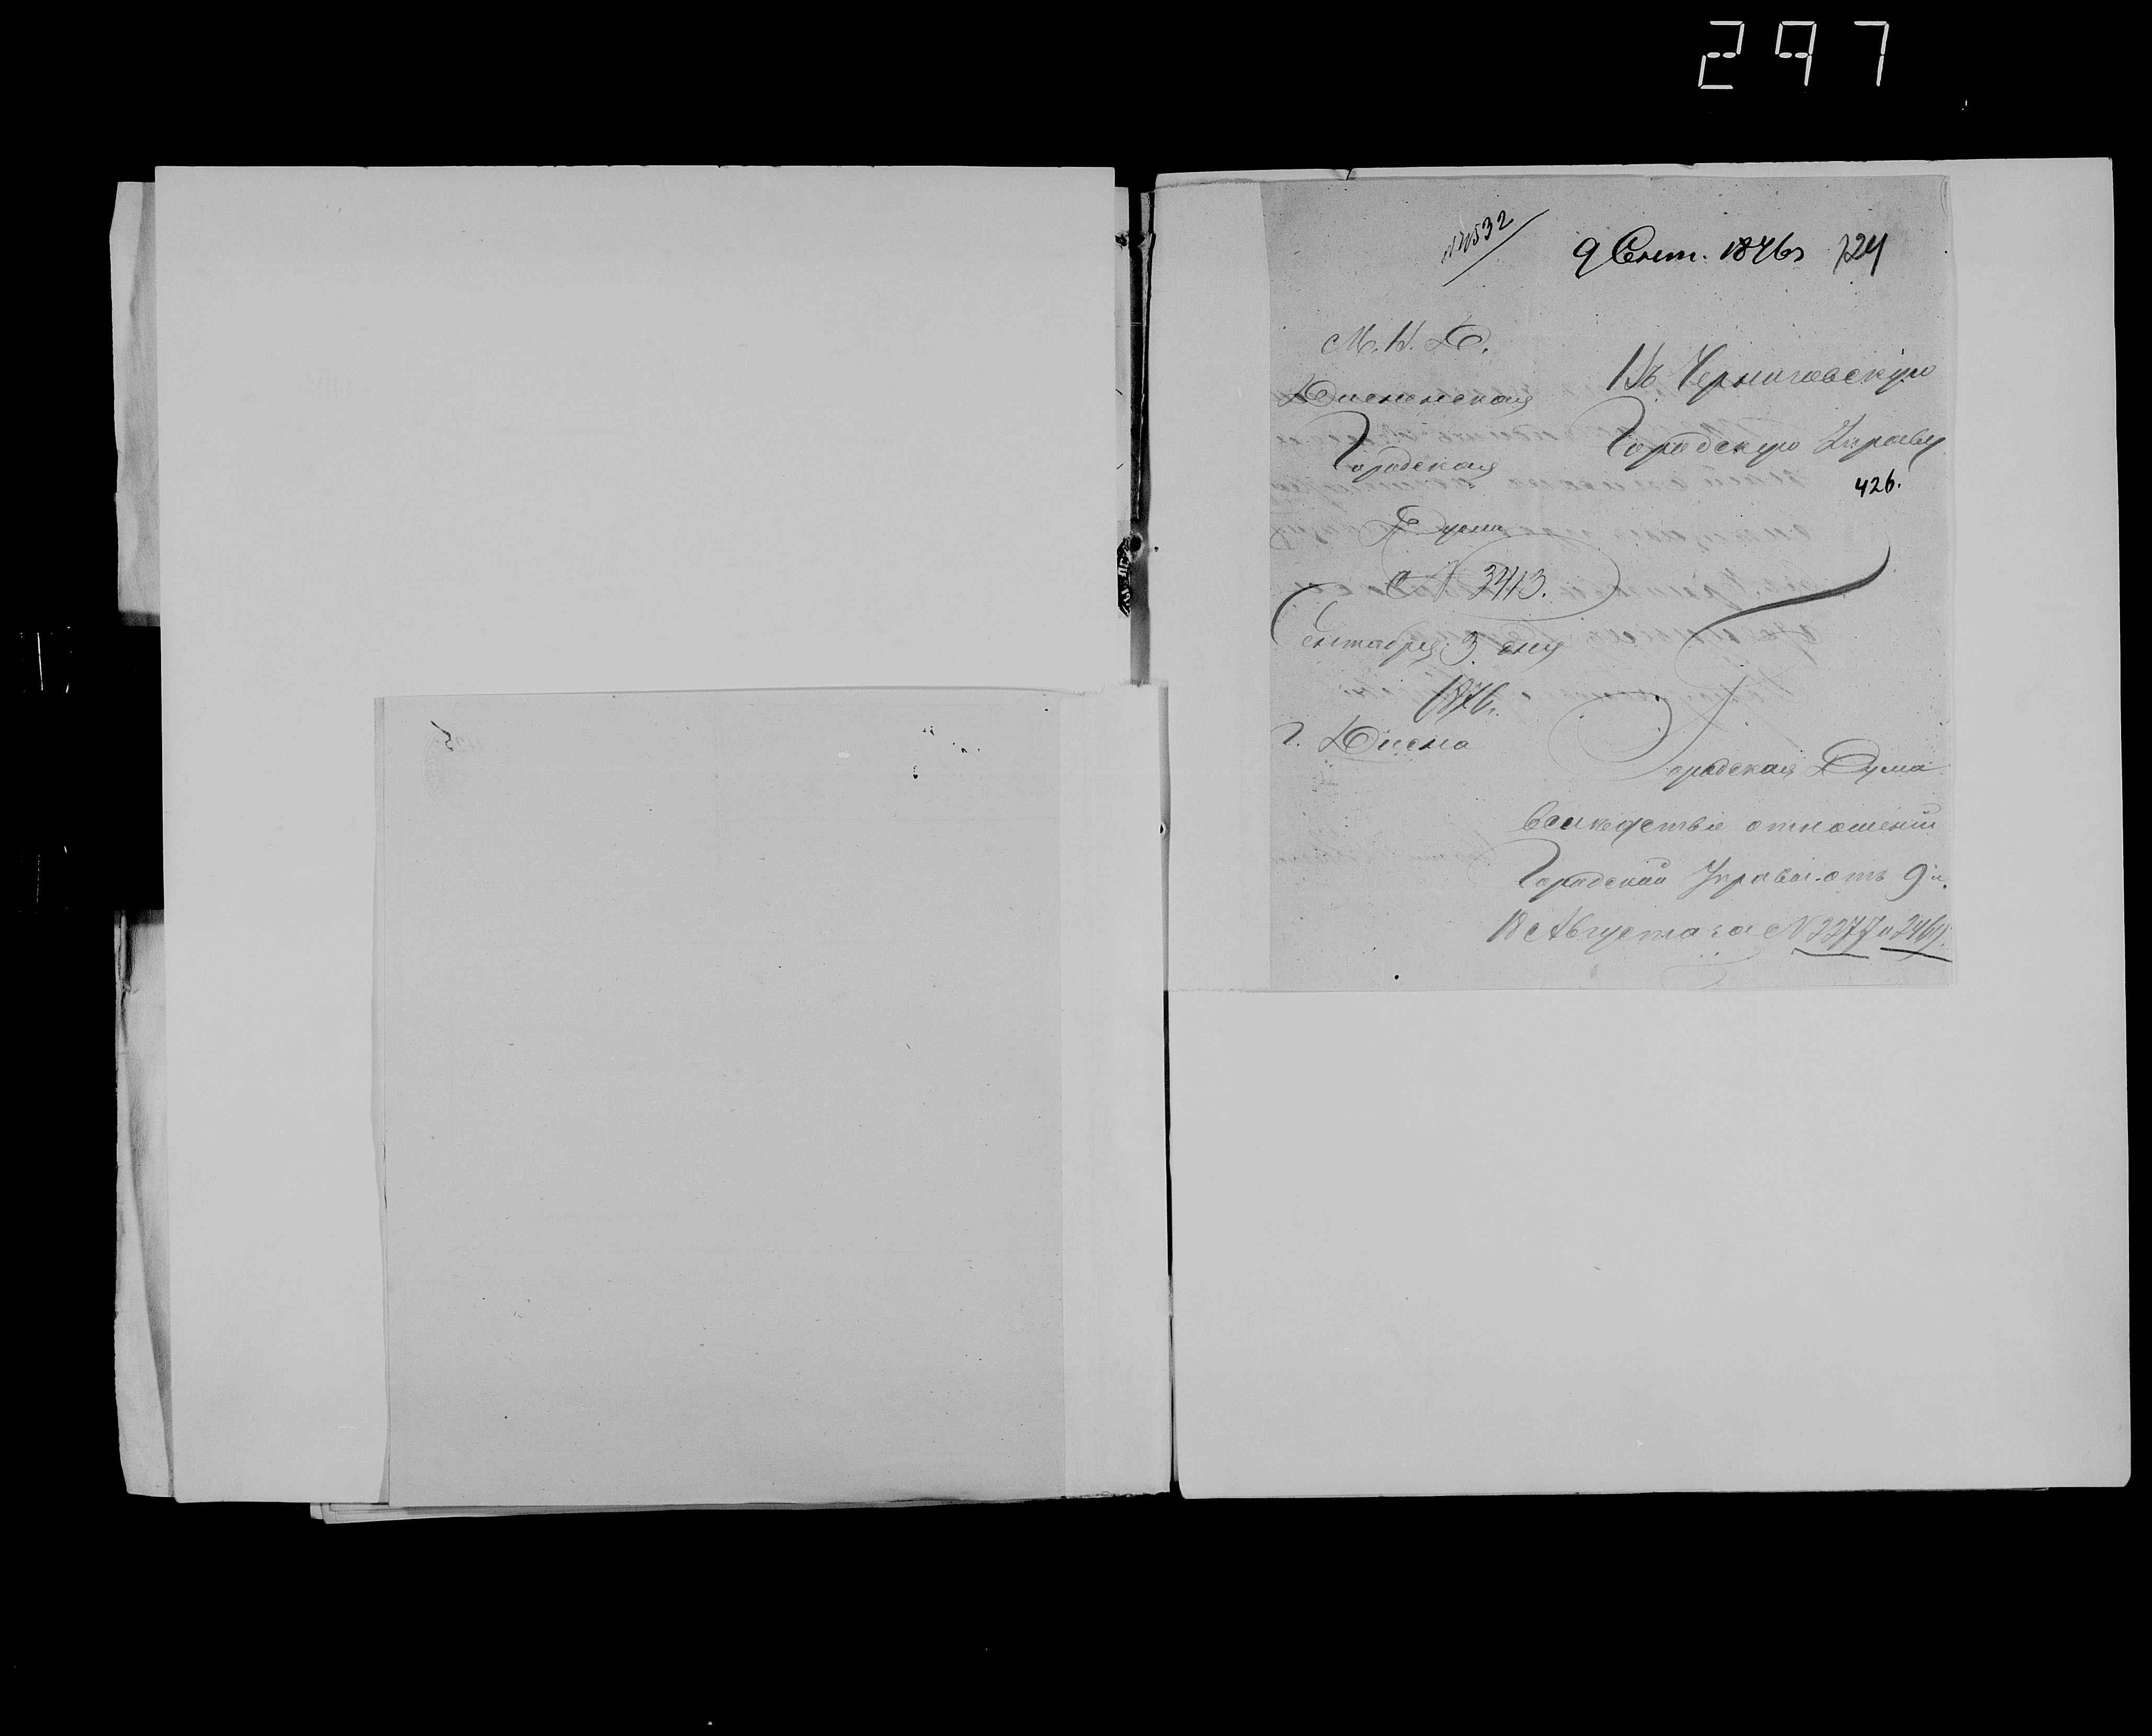 297
9 Сент. 1876 г
М. В. Д.
Дисненская
Городская
Дума
№ 3413.
Сентября 3 дня
1876 г.
г. Дисна
Въ Черниговскую
Городскую Управу
426.
Городская Дума
вследствіе отношеній
Городской Управы отъ 9 и
18 Августа за № 2277 и